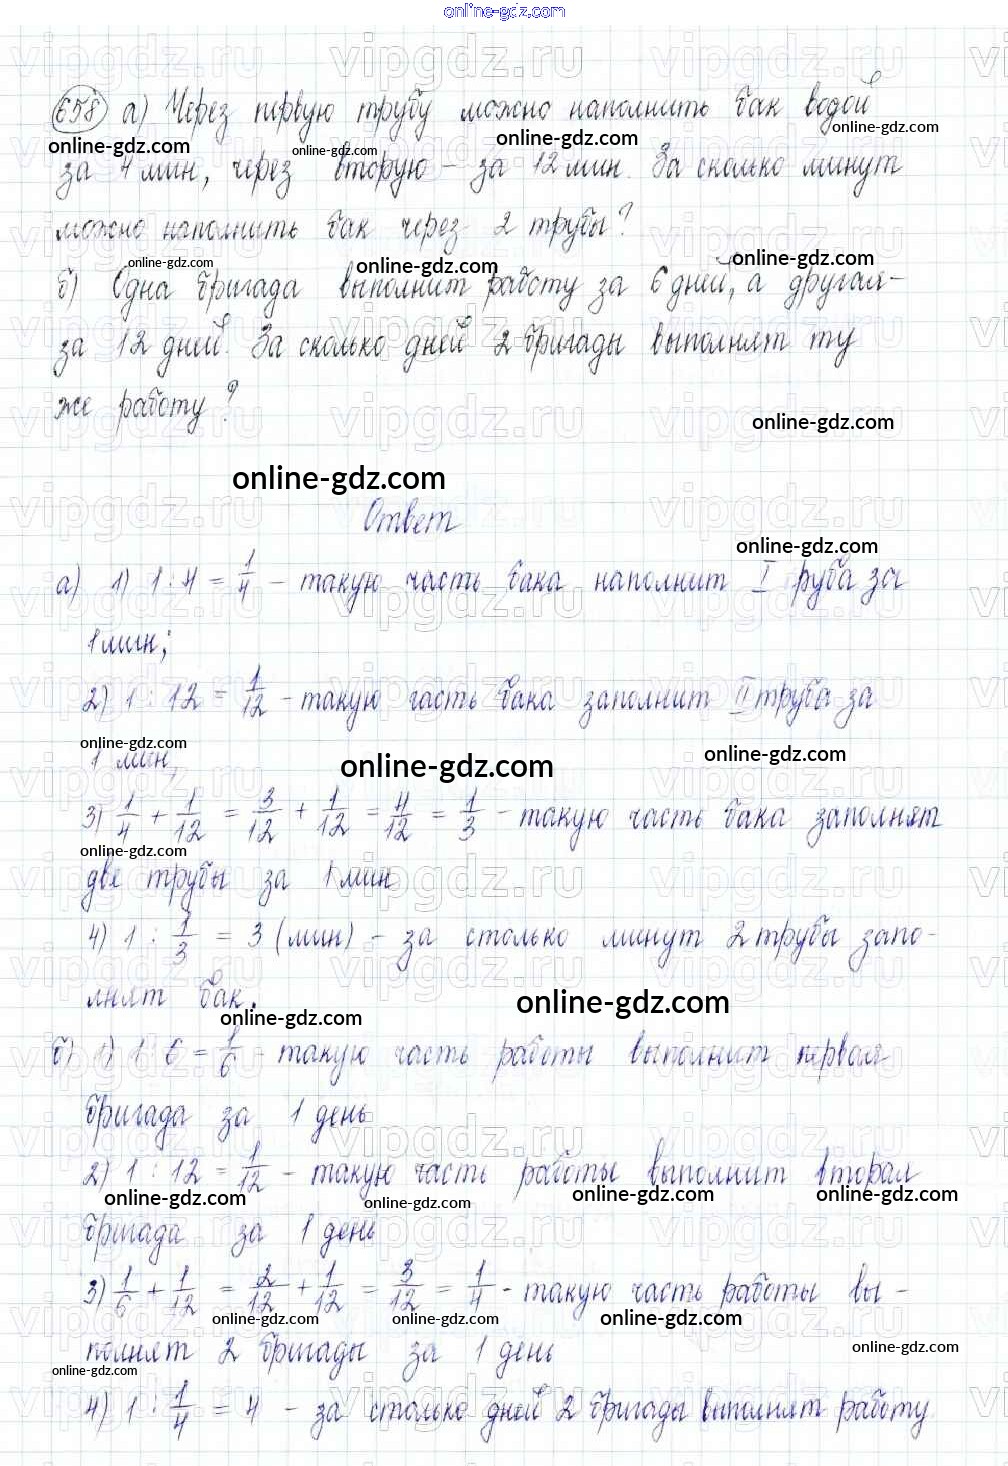 online-gdz.com
658 а) Через первую трубу можно наполнить бак водой
за 4 мин, через вторую - за 12 мин. За сколько минут
можно наполнить бак через 2 трубы?
б) Одна бригада выполнит работу за 6 дней, а другая -
за 12 дней. За сколько дней 2 бригады выполнят ту
же работу?
online-gdz.com
Ответ
а) 1) 1 : 4 = 1/4 - такую часть бака наполнит I руба за
1 мин;
2) 1 : 12 = 1/12 - такую часть бака заполнит II труба за
1 мин,
3) 1/4 + 1/12 = 3/12 + 1/12 = 4/12 = 1/3 - такую часть бака заполнят
две трубы за 1 мин
4) 1 : 1/3 = 3 (мин) - за столько минут 2 трубы запо-
лнят бак.
б) 1) 1 : 6 = 1/6 - такую часть работы выполнит первая
бригада за 1 день
2) 1 : 12 = 1/12 - такую часть работы выполнит вторая
бригада за 1 день
3) 1/6 + 1/12 = 2/12 + 1/12 = 3/12 = 1/4 - такую часть работы вы-
полнят 2 бригады за 1 день
4) 1 : 1/4 = 4 - за столько дней 2 бригады выполнят работу